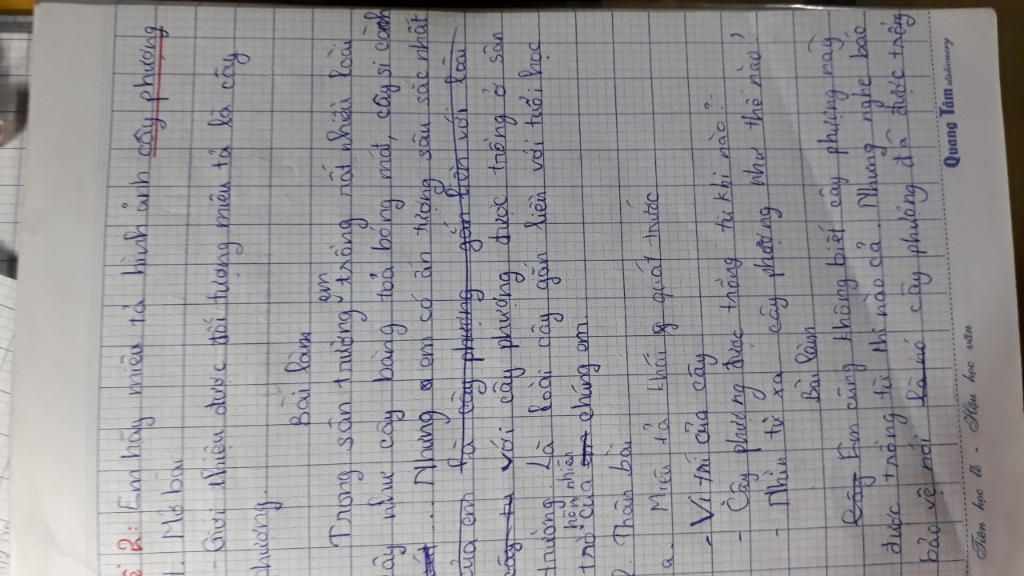 2: Em hãy miêu tả hình ảnh cây phượng
1. Mở bài
- Giới thiệu được đối tượng miêu tả là cây
phượng.
Bài làm
Trong sân trường em trồng rất nhiều loài
cây như cây bàng toả bóng mát, cây si cảnh
.... Nhưng em có ấn tượng sâu sắc nhất
của em là cây phượng gắn liền với loài
cây với cây phượng được trồng ở sân
trường. Là loài cây gắn liền với tuổi học
trò hồn nhiên của em chúng em.
2. Thân bài
a. Miêu tả khái quát trước
- Vị trí của cây
- Cây phương được trồng từ khi nào?
- Nhìn từ xa cây phượng như thế nào?
Bài làm
Em cũng không biết cây phượng này
được trồng từ thì nào cả. Nhưng nghe bác
bảo vệ nói là có cây phường đã được trồng
Quang Tâm stationery
Tiên học lễ - Hậu học văn